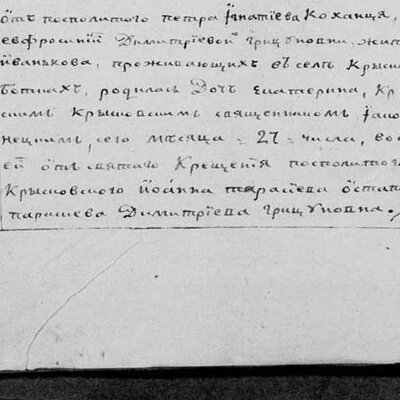 Ѿтъ посполитого петра Їгнатїева Коханця,
евфросинїи Димитрїевой Грицуновни, жит
Їванькова, проживающихъ въ селѣ Крысно
ботиахъ, родилась Дочъ Екатерина, Кр
скимъ Крысновскимъ священникомъ Їако
нецкимъ, сего мѣсяца = 27 = числа, вос
ей Ѿтъ святаго Крещенїя посполитого
Крысновского Їоанна тарасїева Ѡстап
парасїева Димитрїева Грицуновна.